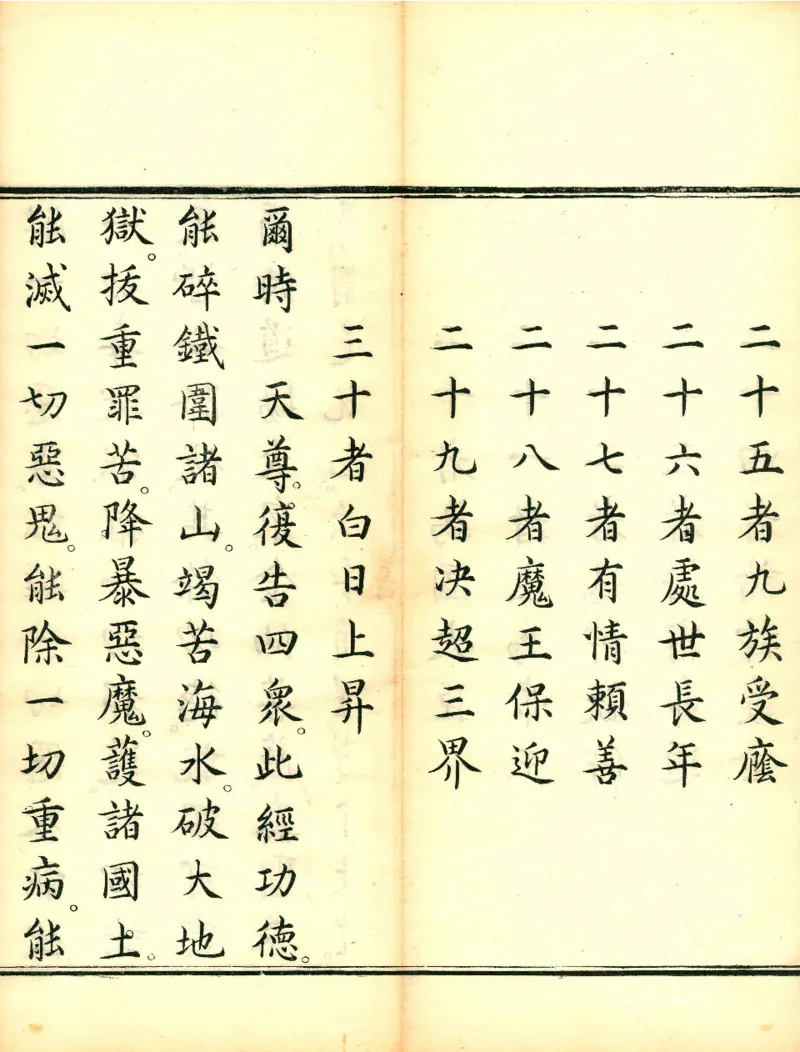 二十五者九族受廕
二十六者處世長年
二十七者有情頼善
二十八者魔王保迎
二十九者決超三界
三十者白日上昇
爾時　天尊。復告四衆。此經功德。
能碎鐵圍諸山。竭苦海水。破大地
獄。拔重罪苦。降暴惡魔。護諸國土。
能滅一切惡鬼。能除一切重病。能